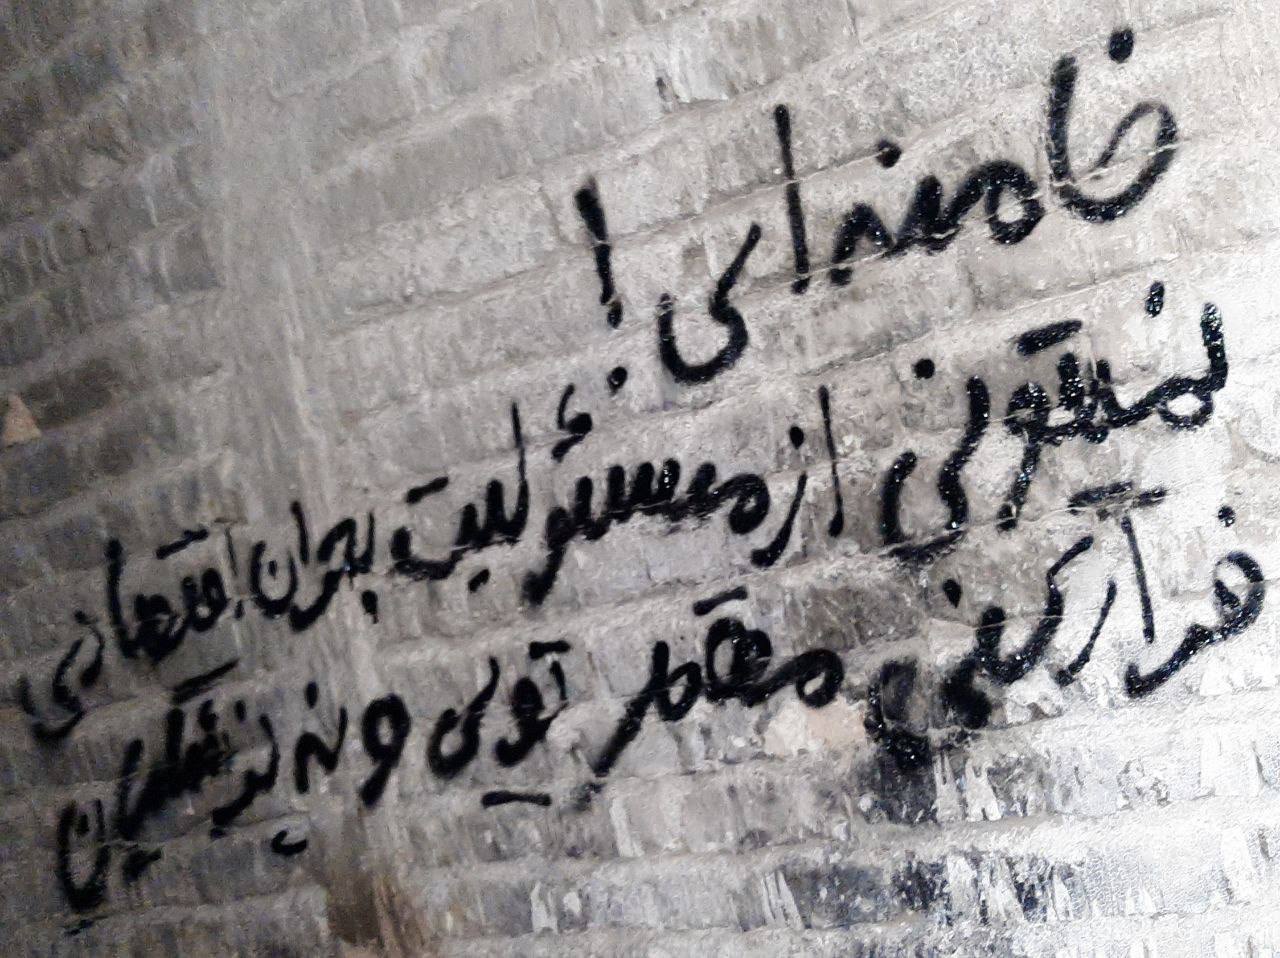 خامنه‌ای!
نمیتونی از مسئولیت بحران اقتصادی
فرار کنی مقصر تویی و نه پزشکیان